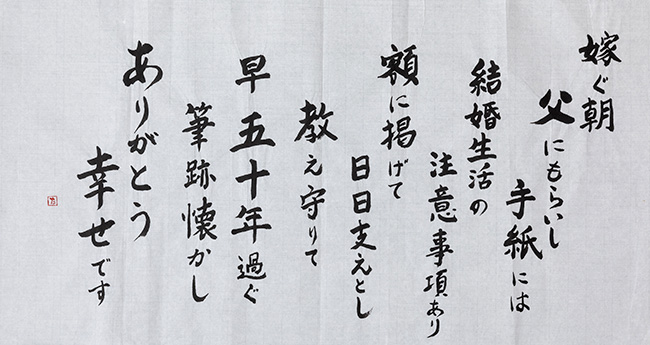 嫁ぐ朝
父にもらいし
手紙には
結婚生活の
注意事項あり
額に掲げて
日日支えとし
教え守りて
早五十年過ぐ
筆跡懐かし
ありがとう
幸せです